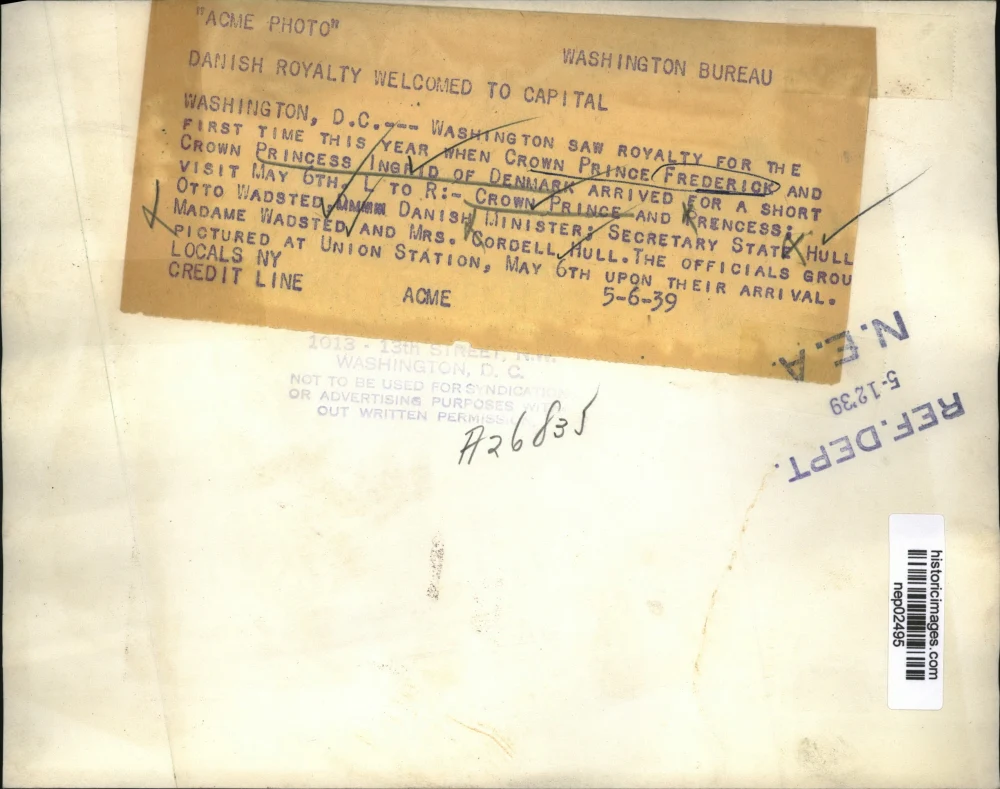 "ACME PHOTO"
WASHINGTON BUREAU
DANISH ROYALTY WELCOMED TO CAPITAL
WASHINGTON, D.C.--- WASHINGTON SAW ROYALTY FOR THE
FIRST TIME THIS YEAR WHEN CROWN PRINCE FREDERICK AND
CROWN PRINCESS INGRID OF DENMARK ARRIVED FOR A SHORT
VISIT MAY 6TH. L TO R:- CROWN PRINCE AND PRENCESS;
OTTO WADSTED, DANISH MINISTER; SECRETARY STATE HULL
MADAME WADSTED AND MRS. CORDELL HULL. THE OFFICIALS GROU
PICTURED AT UNION STATION, MAY 6TH UPON THEIR ARRIVAL.
LOCALS NY
CREDIT LINE ACME 5-6-39
1013 - 13th STREET, N.W.
WASHINGTON, D. C.
NOT TO BE USED FOR SYNDICATION
OR ADVERTISING PURPOSES WITH
OUT WRITTEN PERMISSION
A26835
N.E.A.
5-12'39
REF. DEPT.
historicimages.com
nep02495